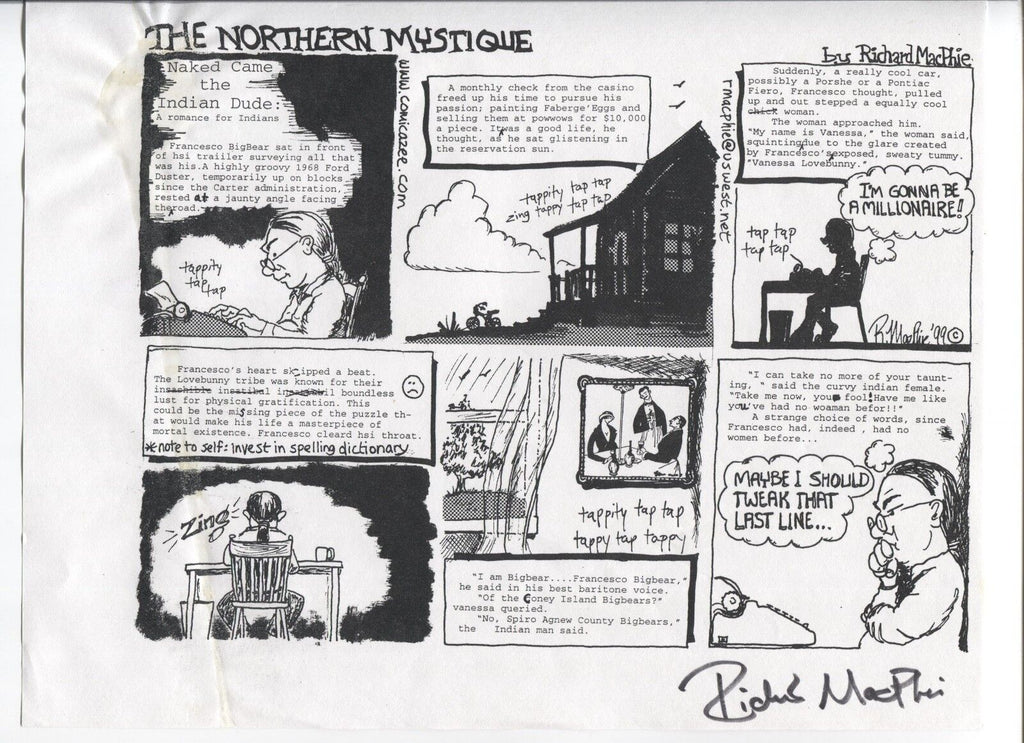 THE NORTHERN MYSTIQUE
by Richard MacPhie
Naked Came
the
Indian Dude:
A romance for Indians
Francesco BigBear sat in front
of hsi traiiler surveying all that
was his.A highly groovy 1968 Ford
Duster, temporarily up on blocks
since the Carter administration,
rested at a jaunty angle facing
theroad.
tappity
tap
tap
www.comicazee.com
A monthly check from the casino
freed up his time to pursue his
passion; painting Faberge'Eggs and
selling them at powwows for $10,000
a piece. It was a good life, he
thought, as he sat glistening in
the reservation sun.
tappity tap tap
zing tappy tap tap
rmacphie@uswest.net
Suddenly, a really cool car,
possibly a Porshe or a Pontiac
Fiero, Francesco thought, pulled
up and out stepped a equally cool
chick woman.
The woman approached him.
"My name is Vanessa," the woman said,
squinting due to the glare created
by Francesco's exposed, sweaty tummy.
"Vanessa Lovebunny."
I'M GONNA BE
A MILLIONAIRE!
tap tap
tap tap
R. MacPhie '99 ©
Francesco's heart skipped a beat.
The Lovebunny tribe was known for their
insachible inestibal insasibil boundless
lust for physical gratification. This
could be the missing piece of the puzzle th-
at would make his life a masterpiece of
mortal existence. Francesco cleard hsi throat.
*note to self: invest in spelling dictionary
Zing
tappity tap tap
tappy tap tappy
"I am Bigbear....Francesco Bigbear,"
he said in his best baritone voice.
"Of the Coney Island Bigbears?"
vanessa queried.
"No, Spiro Agnew County Bigbears,"
the Indian man said.
"I can take no more of your taunt-
ing, " said the curvy indian female.
"Take me now, you fool!Have me like
you've had no woaman befor!!"
A strange choice of words, since
Francesco had, indeed , had no
women before...
MAYBE I SHOULD
TWEAK THAT
LAST LINE...
Richard MacPhie